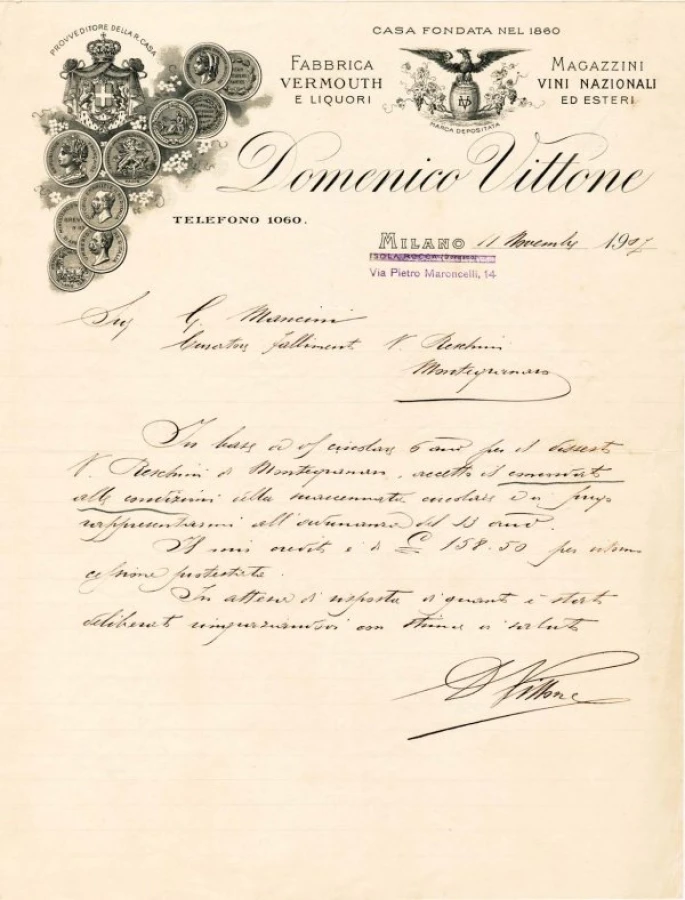 PROVVEDITORE DELLA R. CASA
CASA FONDATA NEL 1860
FABBRICA
VERMOUTH
E LIQUORI
MAGAZZINI
VINI NAZIONALI
ED ESTERI
MARCA DEPOSITATA
Domenico Vittone
TELEFONO 1060.
MILANO 11 Novembre 1907
ISOLA ROCCA
Via Pietro Maroncelli, 14
Sig G. Mancini
Curatore fallimento V. Reschini
Montegranaro
In base a vs/ circolare 6 and per il dissesto
V. Reschini di Montegranaro, accetto il concordato
alle condizioni della menzionata circolare e vi prego
rappresentarmi all' adunanza del 13 and.
Il mio credito è di £ 158.50 per
cessione protestata.
In attesa di risposta di quanto è stato
deliberato ringraziandovi con stima vi saluto
D Vittone